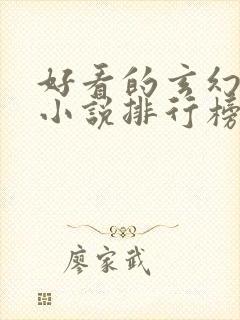 好看的玄幻
小说排行榜
廖家武